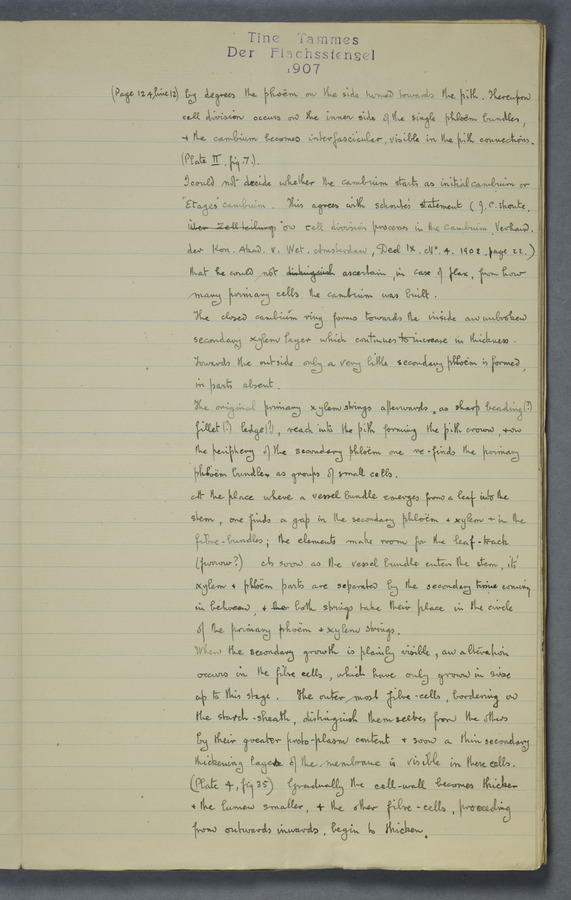 Tine Tammes
Der Flachsstengel
1907
(Page 124, line 12) by degrees the phoëm on the side turned towards the pith. Thereupon
cell division occurs on the inner side of the single phloëm bundles,
+ the cambium becomes interfascicular, visible in the pith connections.
(Plate II, fig. 7.).
I could not decide whether the cambium starts as initial cambium or
"Etages" cambium. This agrees with schoute's statement (J. C. Shoute,
über Zellteilung "on cell division processes in the Cambium, Verhand.
der Kon. Akad. v. Wet. Amsterdam, Deel IX. No. 4. 1902, page 22.)
that he could not distinguish ascertain, in case of flax, from how
many primary cells the cambium was built.
The closed cambium ring forms towards the inside an unbroken
secondary xylem layer which continues to increase in thickness.
Towards the outside only a very little secondary phloëm is formed,
in parts absent.
The original primary xylem strings afterwards, as sharp beading (?)
fillet (?) ledge (?), reach into the pith forming the pith crown, + on
the periphery of the secondary phloëm one re-finds the primary
phloëm bundles as groups of small cells.
At the place where a vessel bundle emerges from a leaf into the
stem, one finds a gap in the secondary phloëm + xylem + in the
fibre-bundles; the elements make room for the leaf-track
(furrow?) As soon as the vessel bundle enters the stem, its
xylem + phloëm parts are separated by the secondary tissue coming
in between, + both strings take their place in the circle
of the primary phoëm + xylem strings.
When the secondary growth is plainly visible, an alteration
occurs in the fibre cells, which have only grown in size
up to this stage. The outer most fibre-cells, bordering on
the starch-sheath, distinguish themselves from the others
by their greater proto-plasm content + soon a thin secondary
thickening layer of the membrane is visible in these cells.
(Plate 4, fig 35) Gradually the cell-wall becomes thicker
+ the lumen smaller, + the other fibre-cells, proceeding
from outwards inwards, begin to thicken.